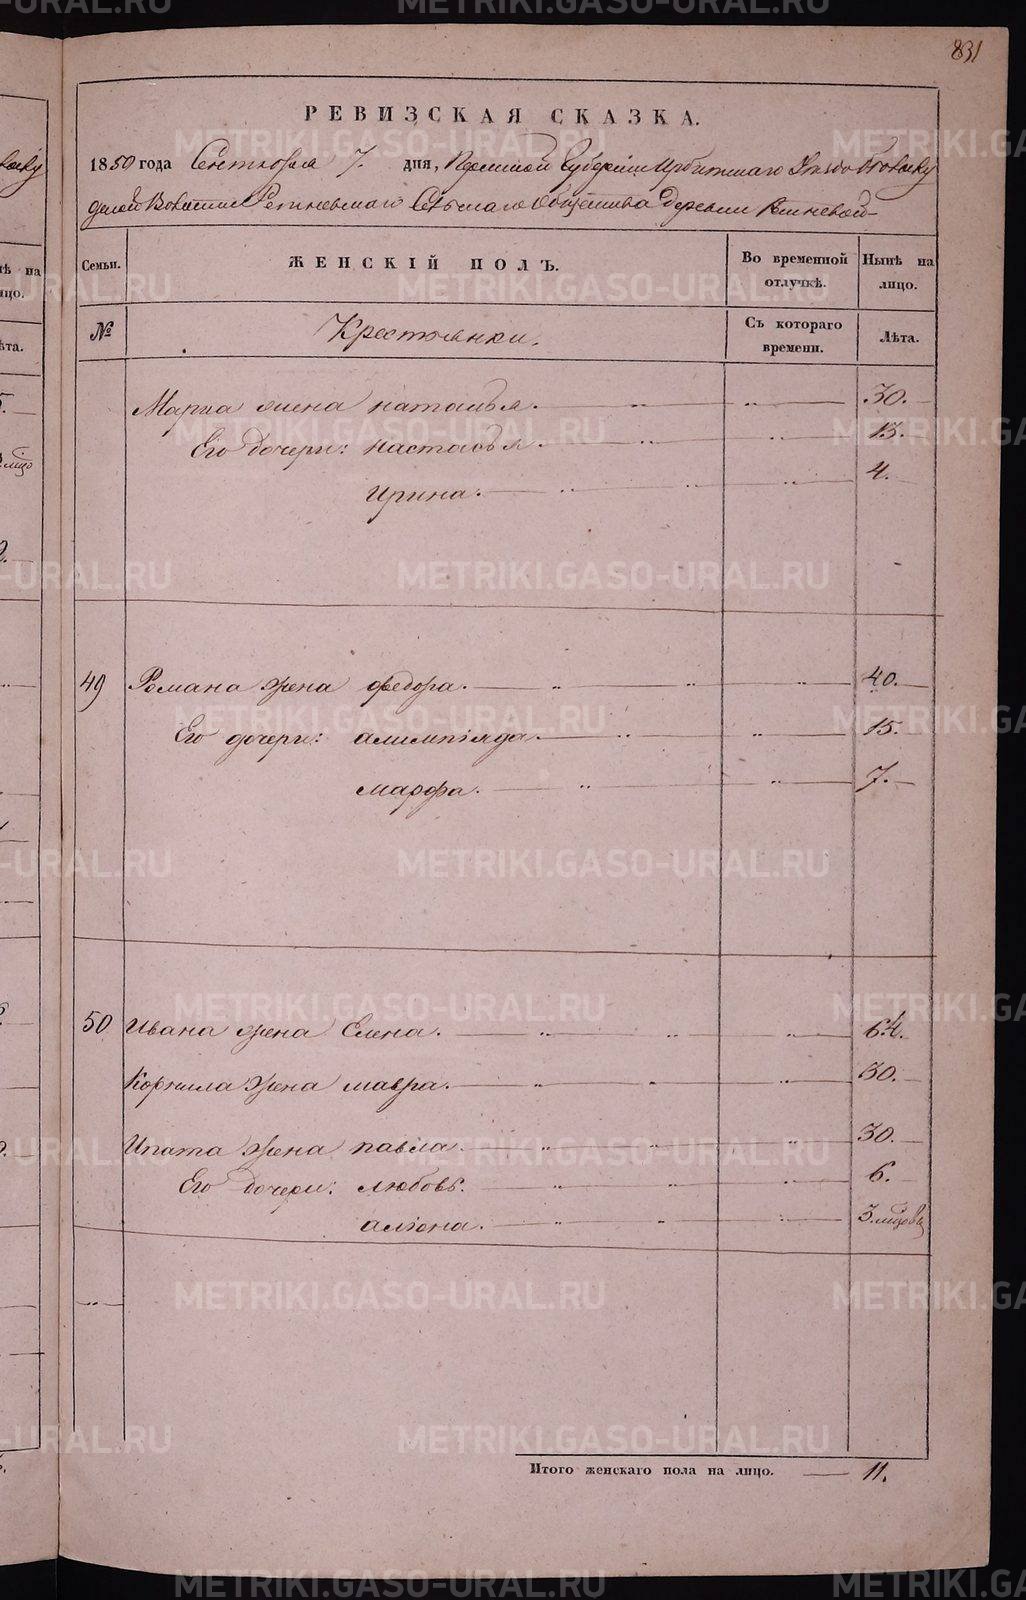 831
РЕВИЗСКАЯ СКАЗКА.
1850 года Сентября 7 дня, Пермской Губернiи Ирбитскаго
Волости Сельскаго Общества Деревни
Семьи.
ЖЕНСКIЙ ПОЛЪ.
Во временной отлучкѣ.
Нынѣ на лицо.
№
Крестьянки.
Съ котораго времени.
Лѣта.
Марка жена наталья. 30.
Его дочери: настасья. 13.
ирина. 4.
49 Романа жена федора. 40.
Его дочери: алимпiяда. 15.
марфа. 7.
50 Ивана жена Елена. 64.
Корнила жена мавра. 30.
Ипата жена павла. 30.
Его дочери: любовь. 6.
алiона. 3
Итого женскаго пола на лицо. 11.
METRIKI.GASO-URAL.RU